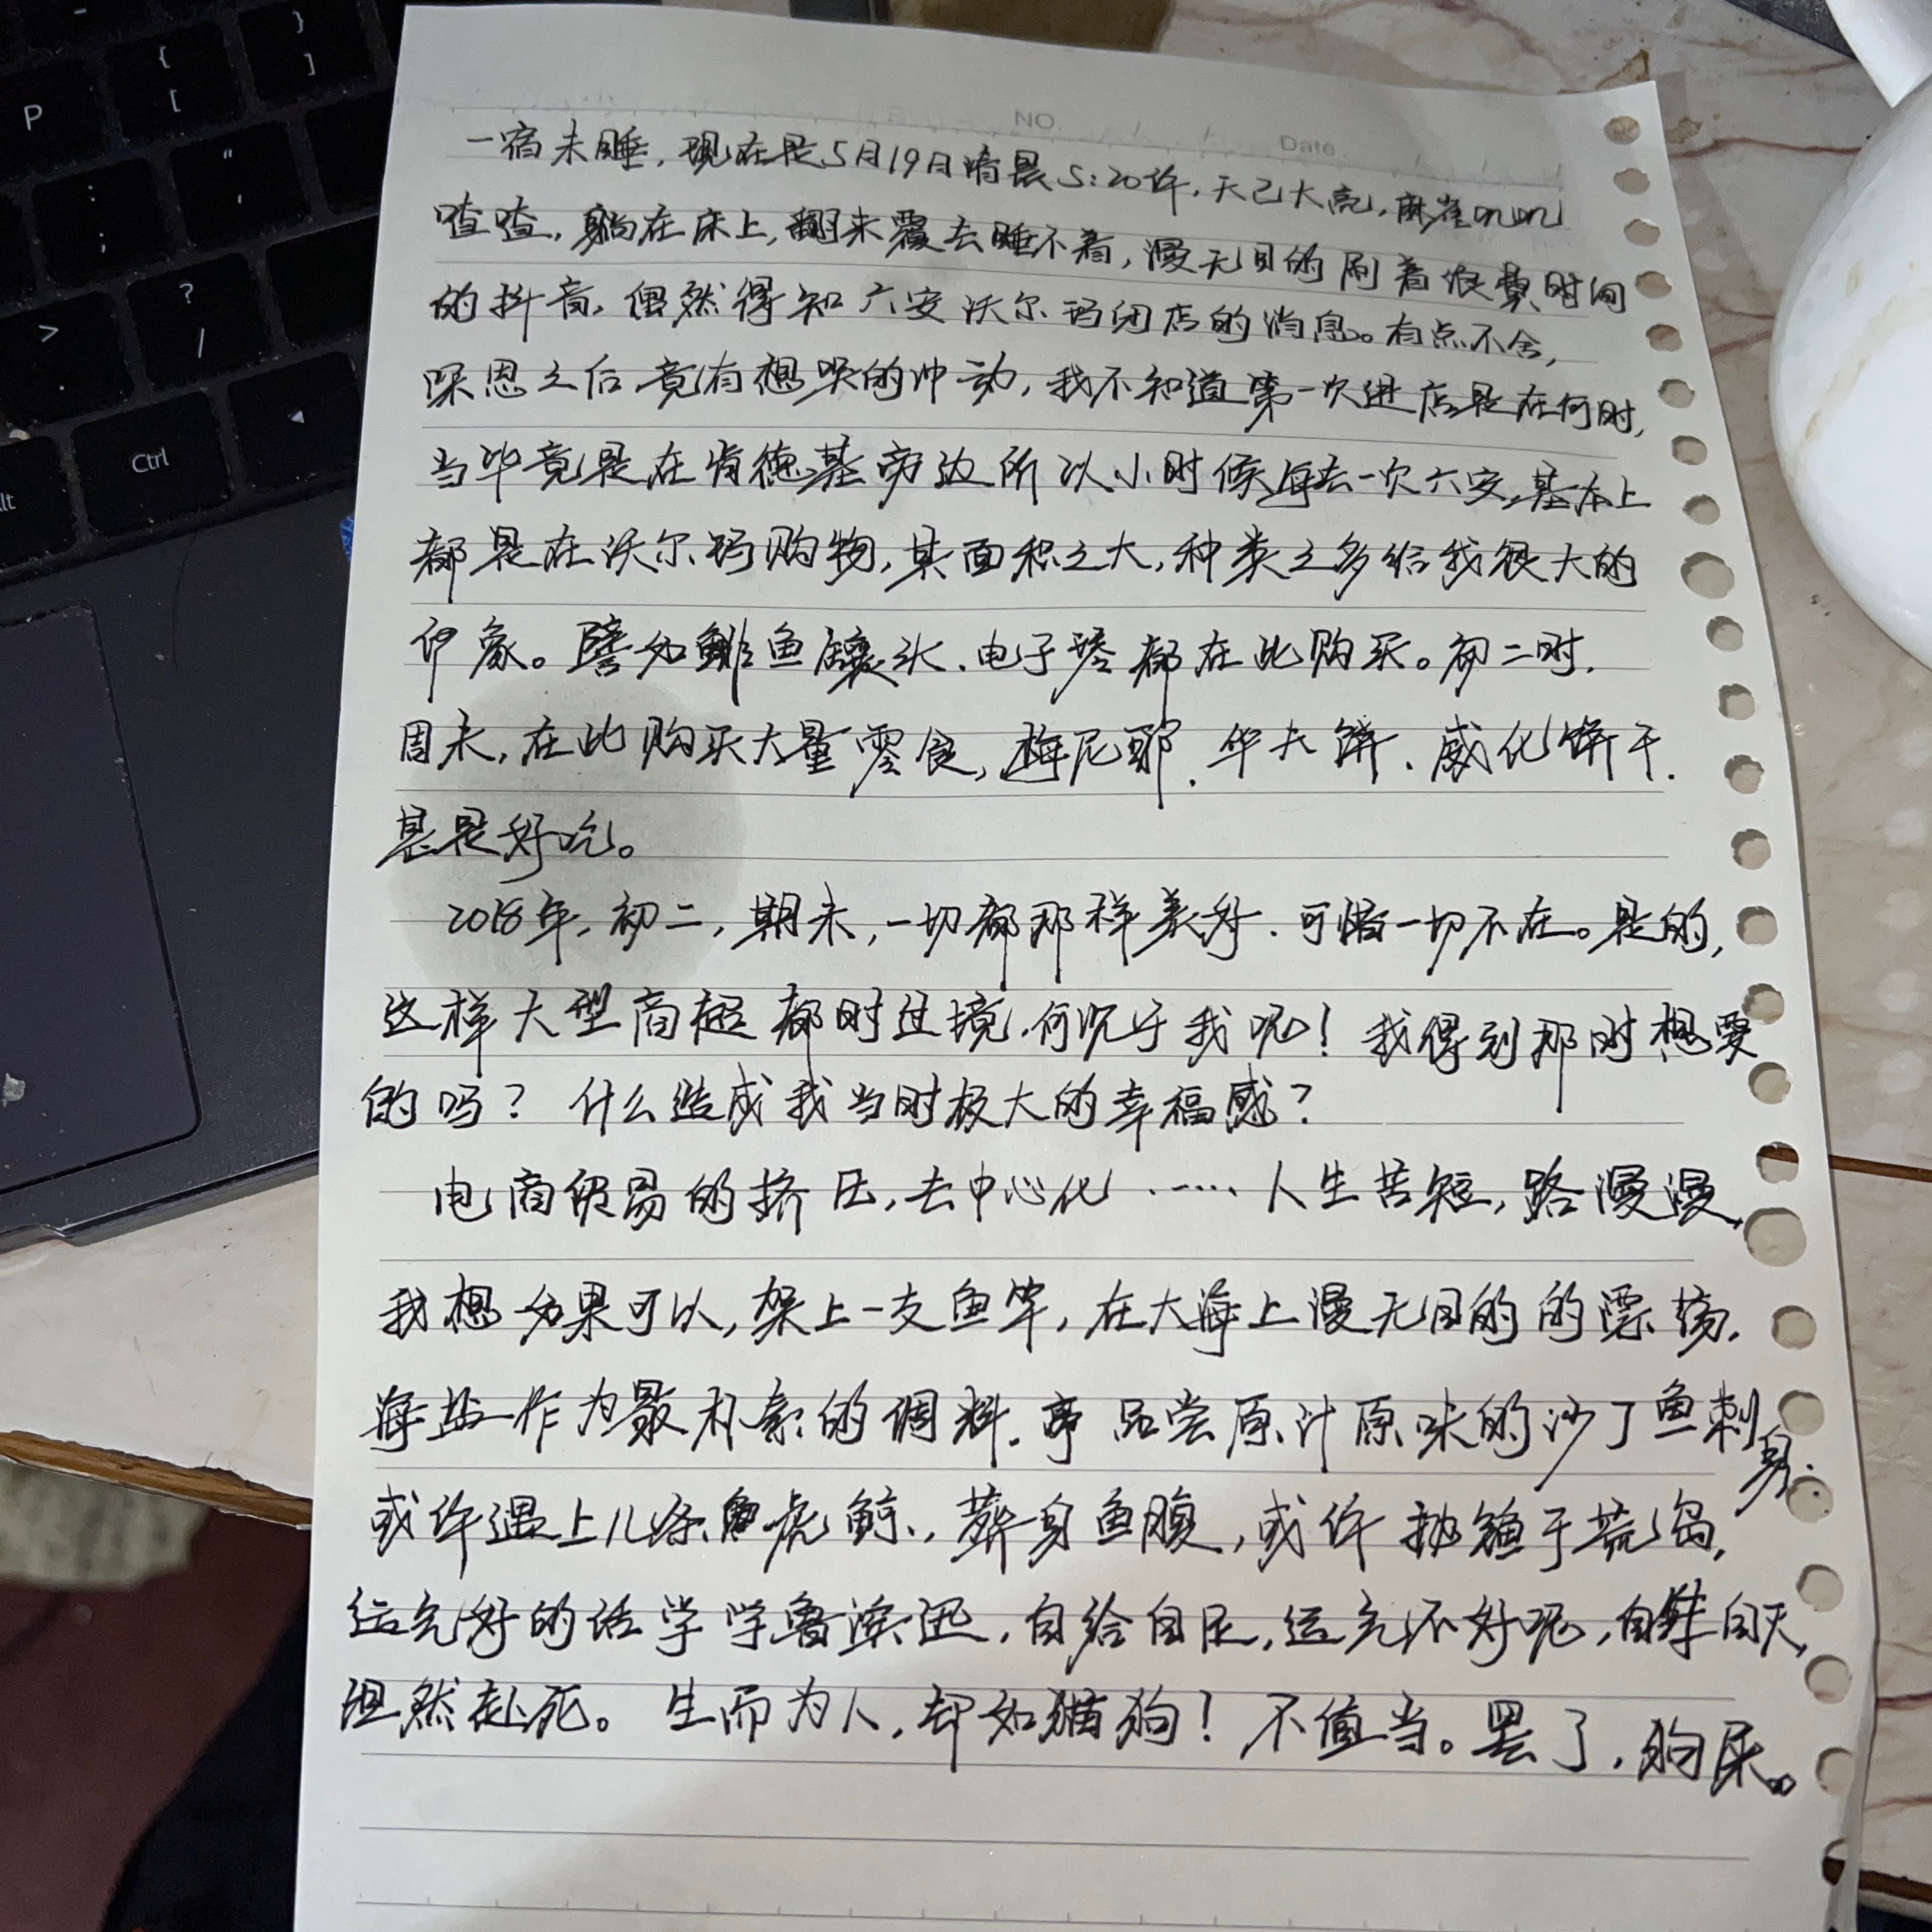 NO.
Date.
一宿未睡，现在是5月19日清晨5:20许，天已大亮，麻雀叽叽
喳喳，躺在床上，翻来覆去睡不着，漫无目的刷着浪费时间
的抖音，偶然得知六安沃尔玛闭店的消息。有点不舍，
深思之后竟有想哭的冲动，我不知道第一次进店是在何时，
当毕竟是在肯德基旁边所以小时候每去一次六安，基本上
都是在沃尔玛购物，其面积之大，种类之多给我很大的
印象。譬如鲱鱼罐头、电子琴都在此购买。初二时，
周末，在此购买大量零食，梅尼耶、华夫饼、威化饼干，
甚是好吃。
2018年，初二，期末，一切都那样美好，可惜一切不在。是的，
这样大型商超都时过境，何况于我呢！我得到那时想要
的吗？什么造成我当时极大的幸福感？
电商贸易的挤压，去中心化……人生苦短，路漫漫，
我想如果可以，架上一支鱼竿，在大海上漫无目的的漂荡，
海盐作为最朴素的调料，品尝原汁原味的沙丁鱼刺身，
或许遇上几条虎鲸，葬身鱼腹，或许抛锚于荒岛，
运气好的话学学鲁滨逊，自给自足，运气不好呢，自生自灭，
坦然赴死。生而为人，却如猪狗！不值当。罢了，狗屎。
P
{
[
}
]
"
:
;
?
/
>
.
Ctrl
lt